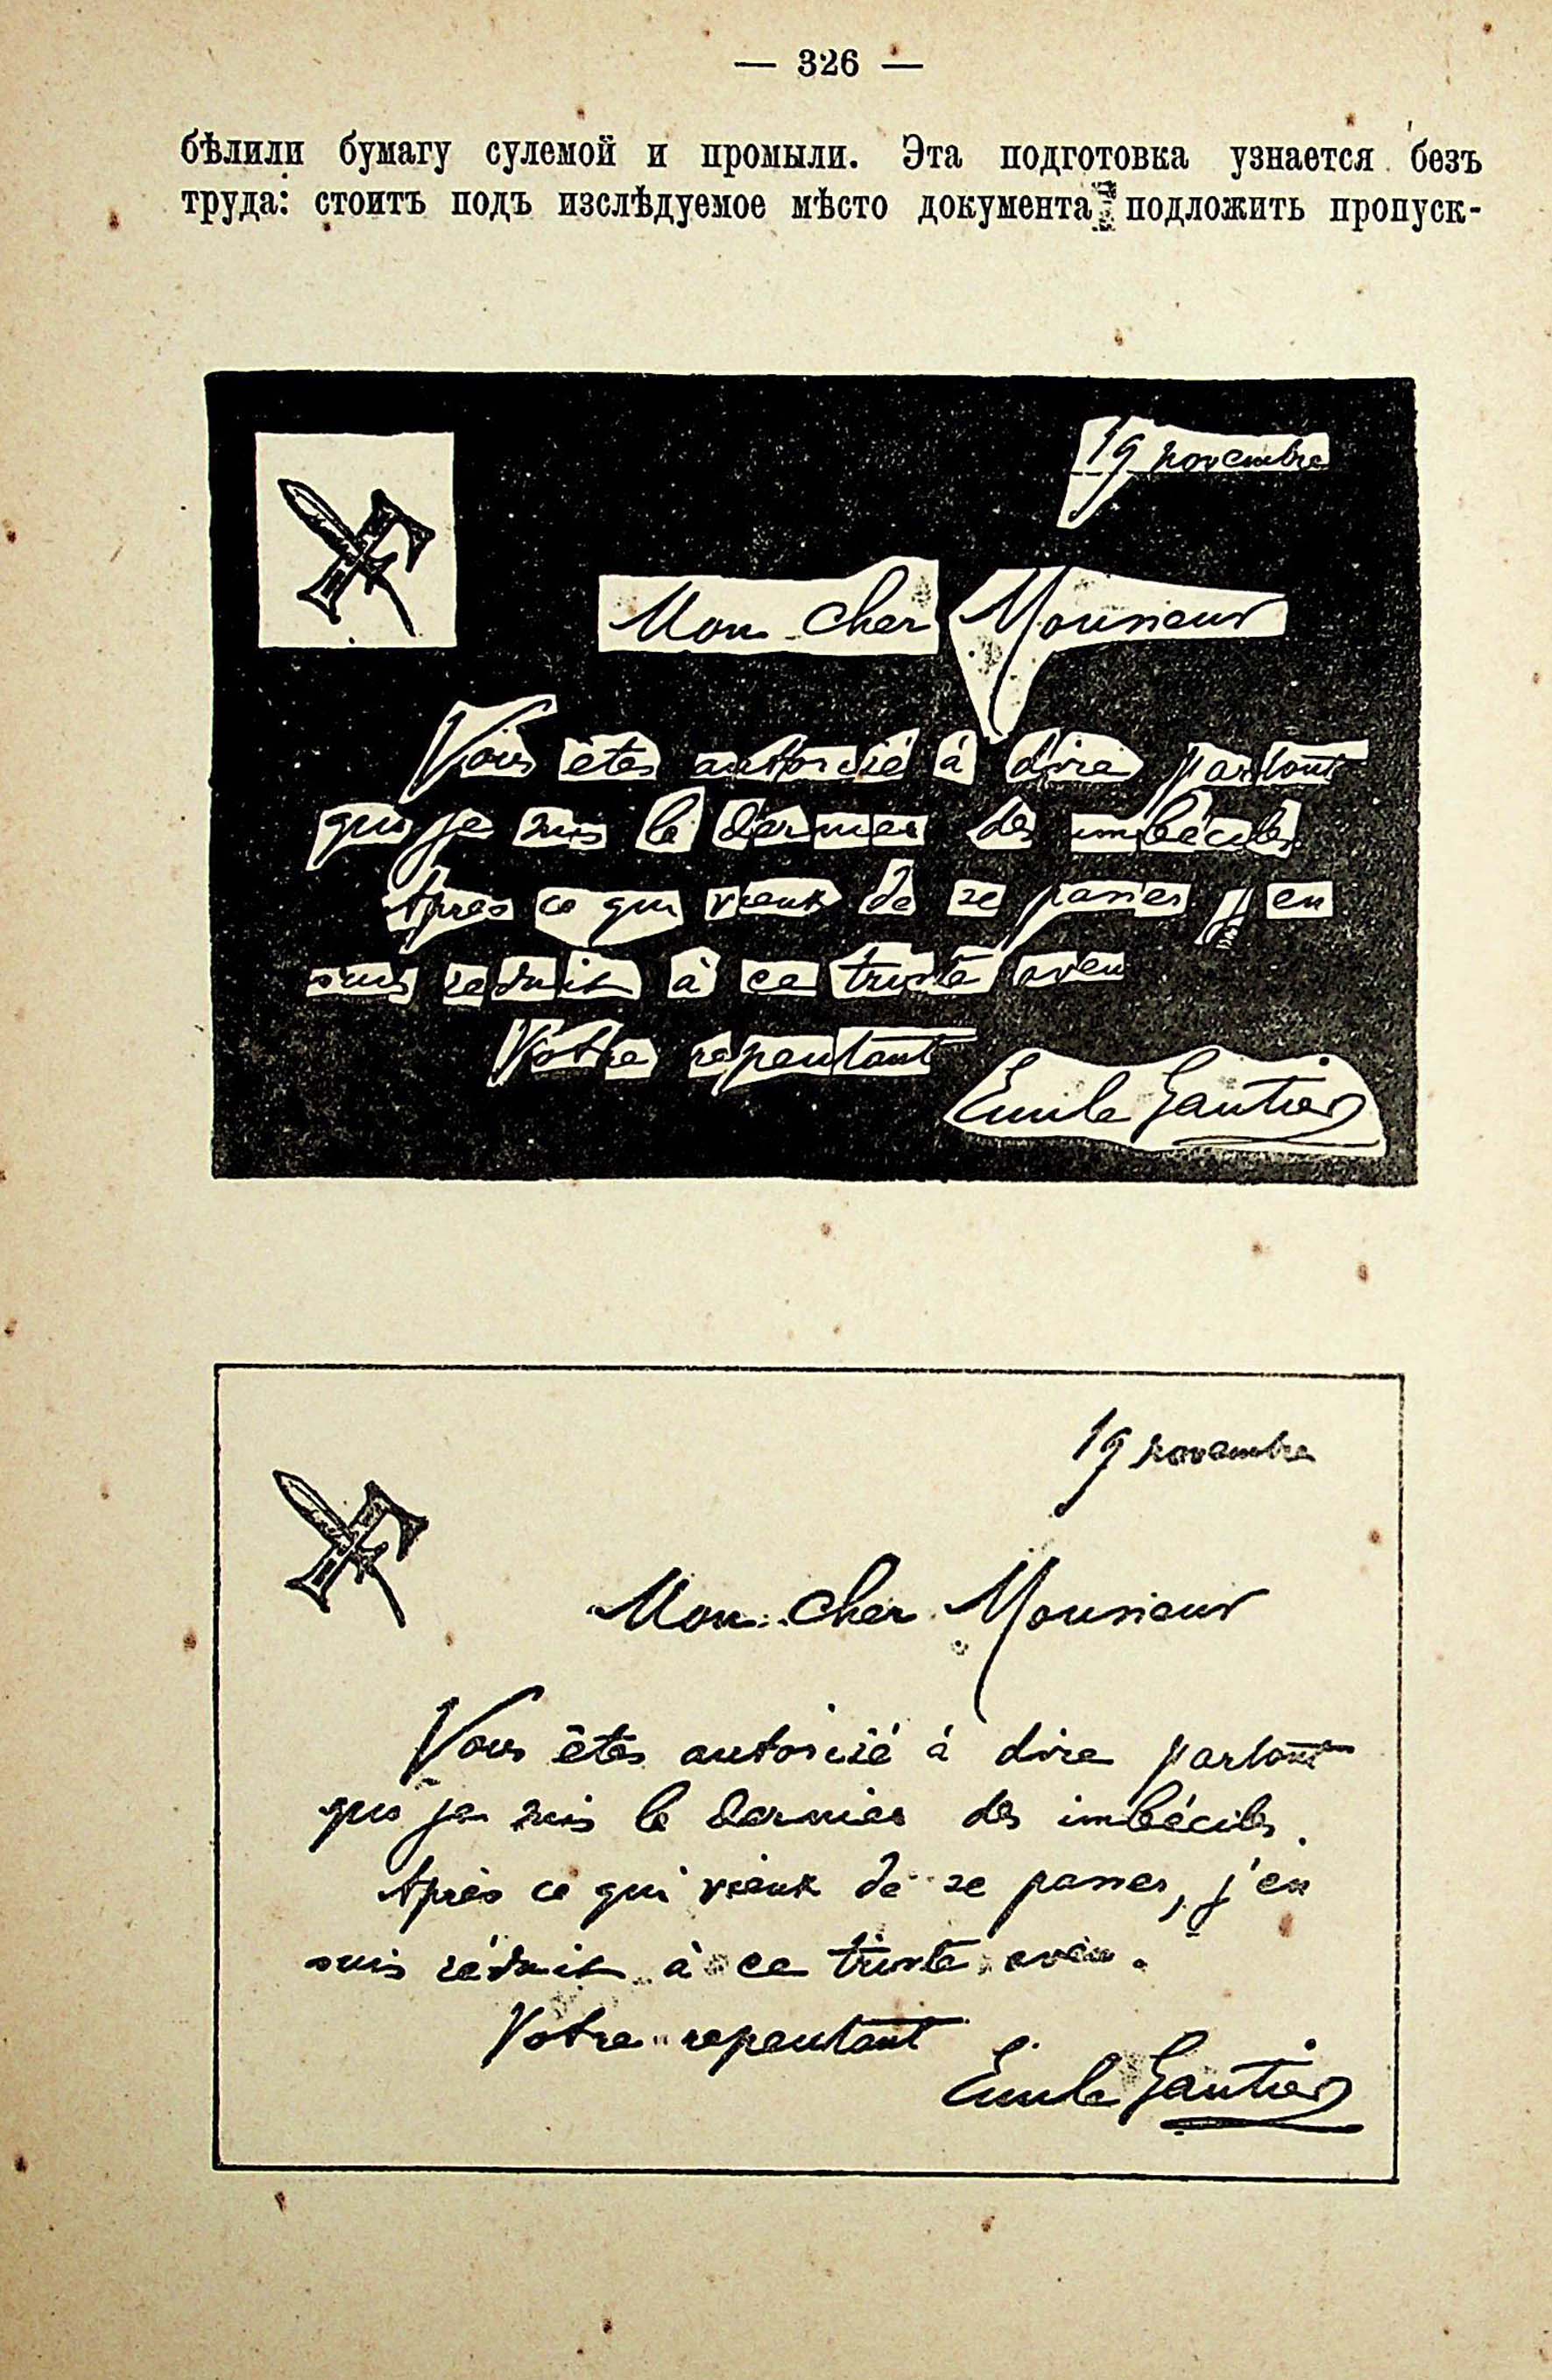 — 326 —
бѣлили бумагу сулемой и промыли. Эта подготовка узнается безъ
труда: стоитъ подъ изслѣдуемое мѣсто документа подложить пропуск-
19 novembre
Mon cher Monsieur
Vous êtes autorisé à dire partout
que je suis le dernier des imbéciles
Après ce qui vient de se passer j en
suis réduit à ce triste aveu
Votre repentant
Emile Gautier
19 novembre
Mon cher Monsieur
Vous êtes autorisé à dire partout
que je suis le dernier des imbéciles.
Après ce qui vient de se passer, j'en
suis réduit à ce triste aveu.
Votre repentant
Emile Gautier